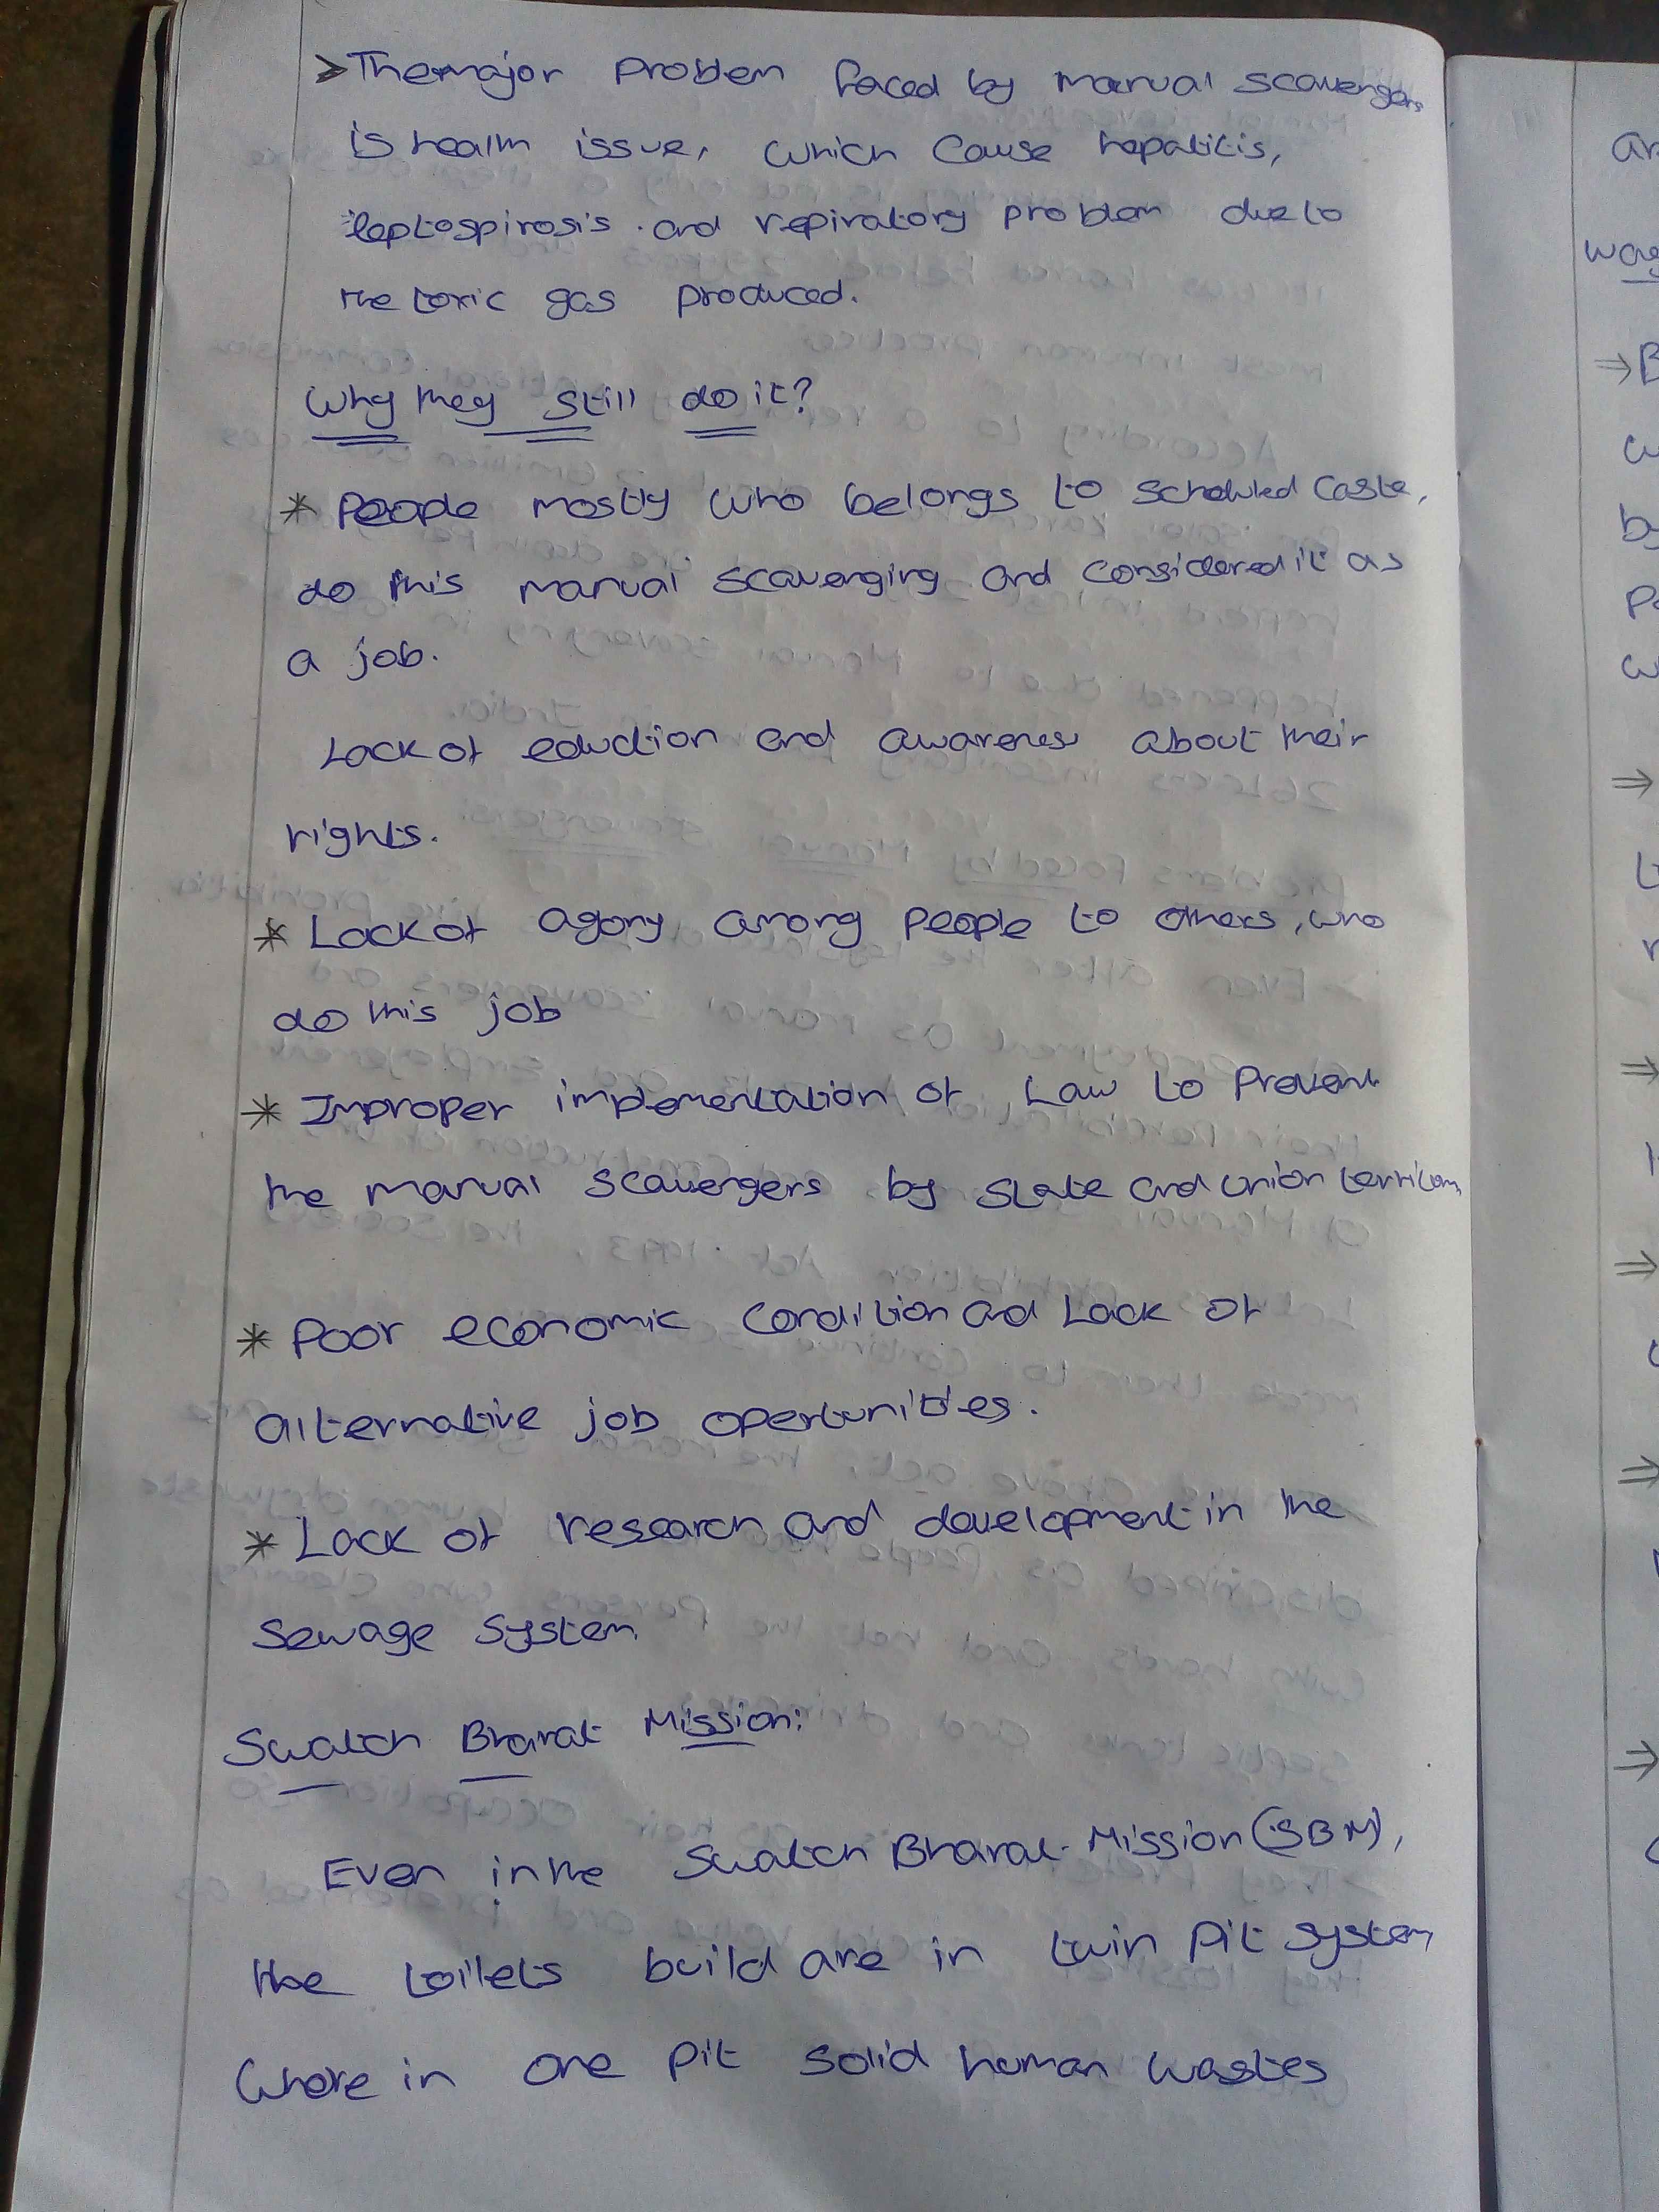 > The major problem faced by manual scavengers
is health issue, which cause hepatitis,
leptospirosis. and repiratory problem due to
the toxic gas produced.
Why they still do it?
* People mostly who belongs to scheduled caste,
do this manual scavenging and considered it as
a job.
Lack of eduction and awareness about their
rights.
* Lack of agony among people to others, who
do this job
* Improper implementation of Law to Prevent
the manual scavengers by state and union territory
* Poor economic condition and Lack of
alternative job opertunities.
* Lack of research and development in the
Sewage system
Swatch Bharat Mission:
Even in the Swatch Bharat Mission (SBM),
the toilets build are in twin pit system
Where in one pit solid human wastes